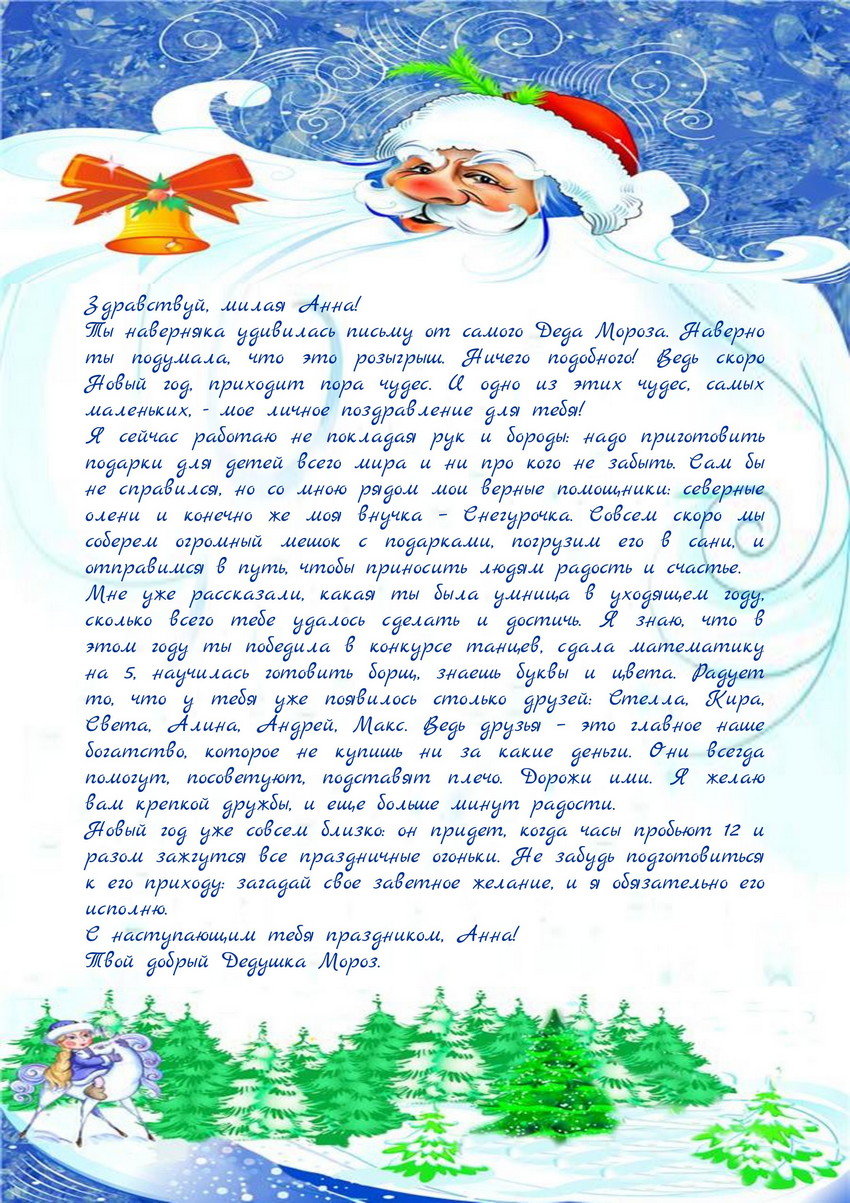 Здравствуй, милая Анна!
Ты наверняка удивилась письму от самого Деда Мороза. Наверно
ты подумала, что это розыгрыш. Ничего подобного! Ведь скоро
Новый год, приходит пора чудес. И одно из этих чудес, самых
маленьких, - мое личное поздравление для тебя!
Я сейчас работаю не покладая рук и бороды: надо приготовить
подарки для детей всего мира и ни про кого не забыть. Сам бы
не справился, но со мною рядом мои верные помощники: северные
олени и конечно же моя внучка – Снегурочка. Совсем скоро мы
соберем огромный мешок с подарками, погрузим его в сани, и
отправимся в путь, чтобы приносить людям радость и счастье.
Мне уже рассказали, какая ты была умница в уходящем году,
сколько всего тебе удалось сделать и достичь. Я знаю, что в
этом году ты победила в конкурсе танцев, сдала математику
на 5, научилась готовить борщ, знаешь буквы и цвета. Радует
то, что у тебя уже появилось столько друзей: Стелла, Кира,
Света, Алина, Андрей, Макс. Ведь друзья – это главное наше
богатство, которое не купишь ни за какие деньги. Они всегда
помогут, посоветуют, подставят плечо. Дорожи ими. Я желаю
вам крепкой дружбы, и еще больше минут радости.
Новый год уже совсем близко: он придет, когда часы пробьют 12 и
разом зажгутся все праздничные огоньки. Не забудь подготовиться
к его приходу: загадай свое заветное желание, и я обязательно его
исполню.
С наступающим тебя праздником, Анна!
Твой добрый Дедушка Мороз.